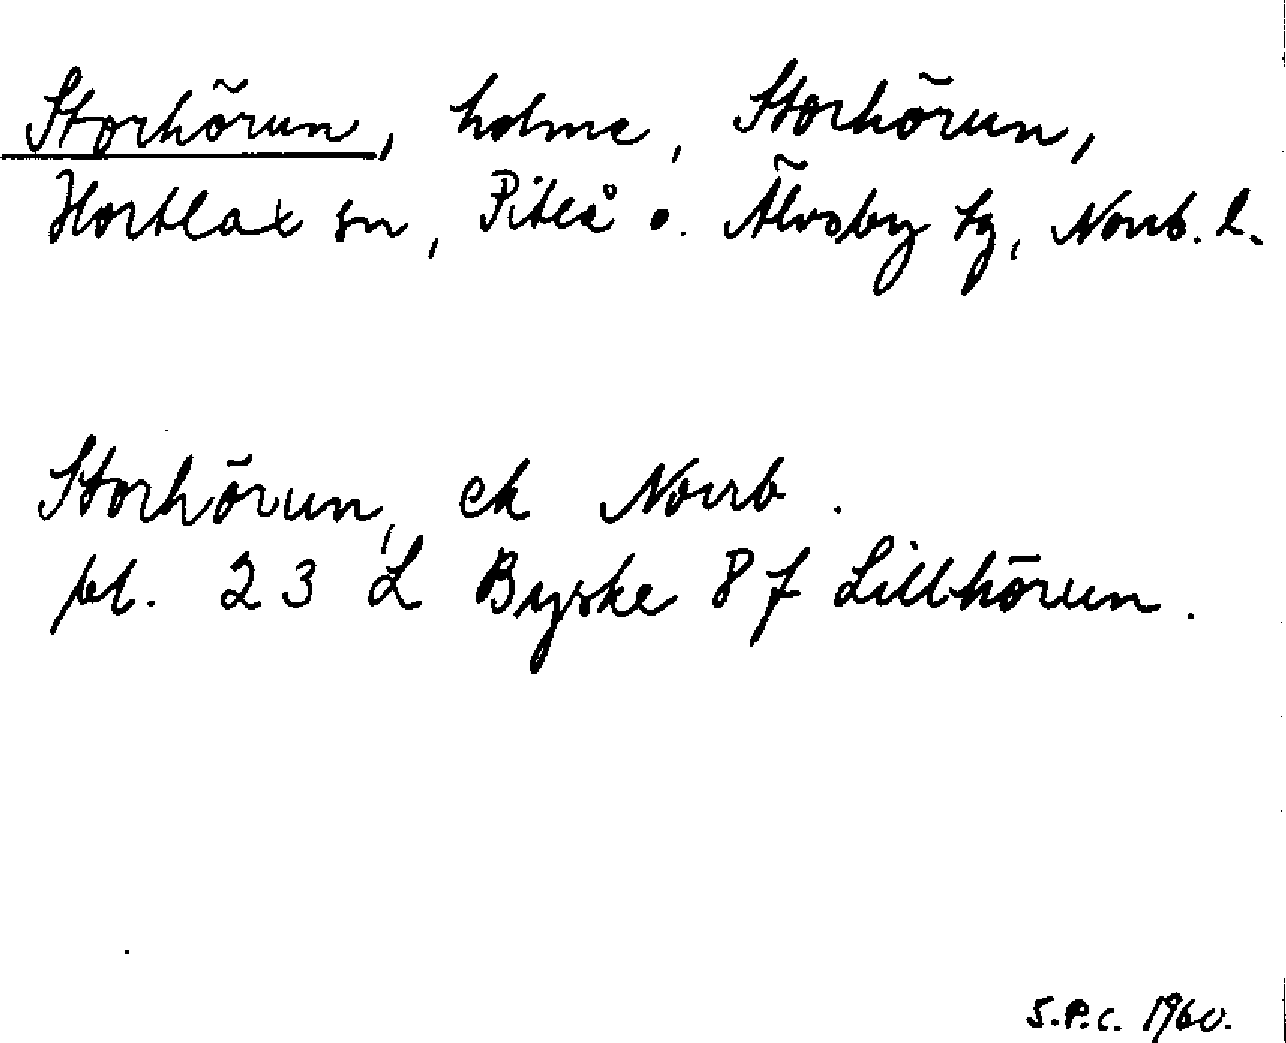 Storhörun, holme, Storhörun,
Hortlax sn, Piteå o. Älvsby tg, Norrb. l.
Storhörun, ek Norrb.
pl. 23 L Byske 8 f Lillhörun.
S.P.C. 1960.